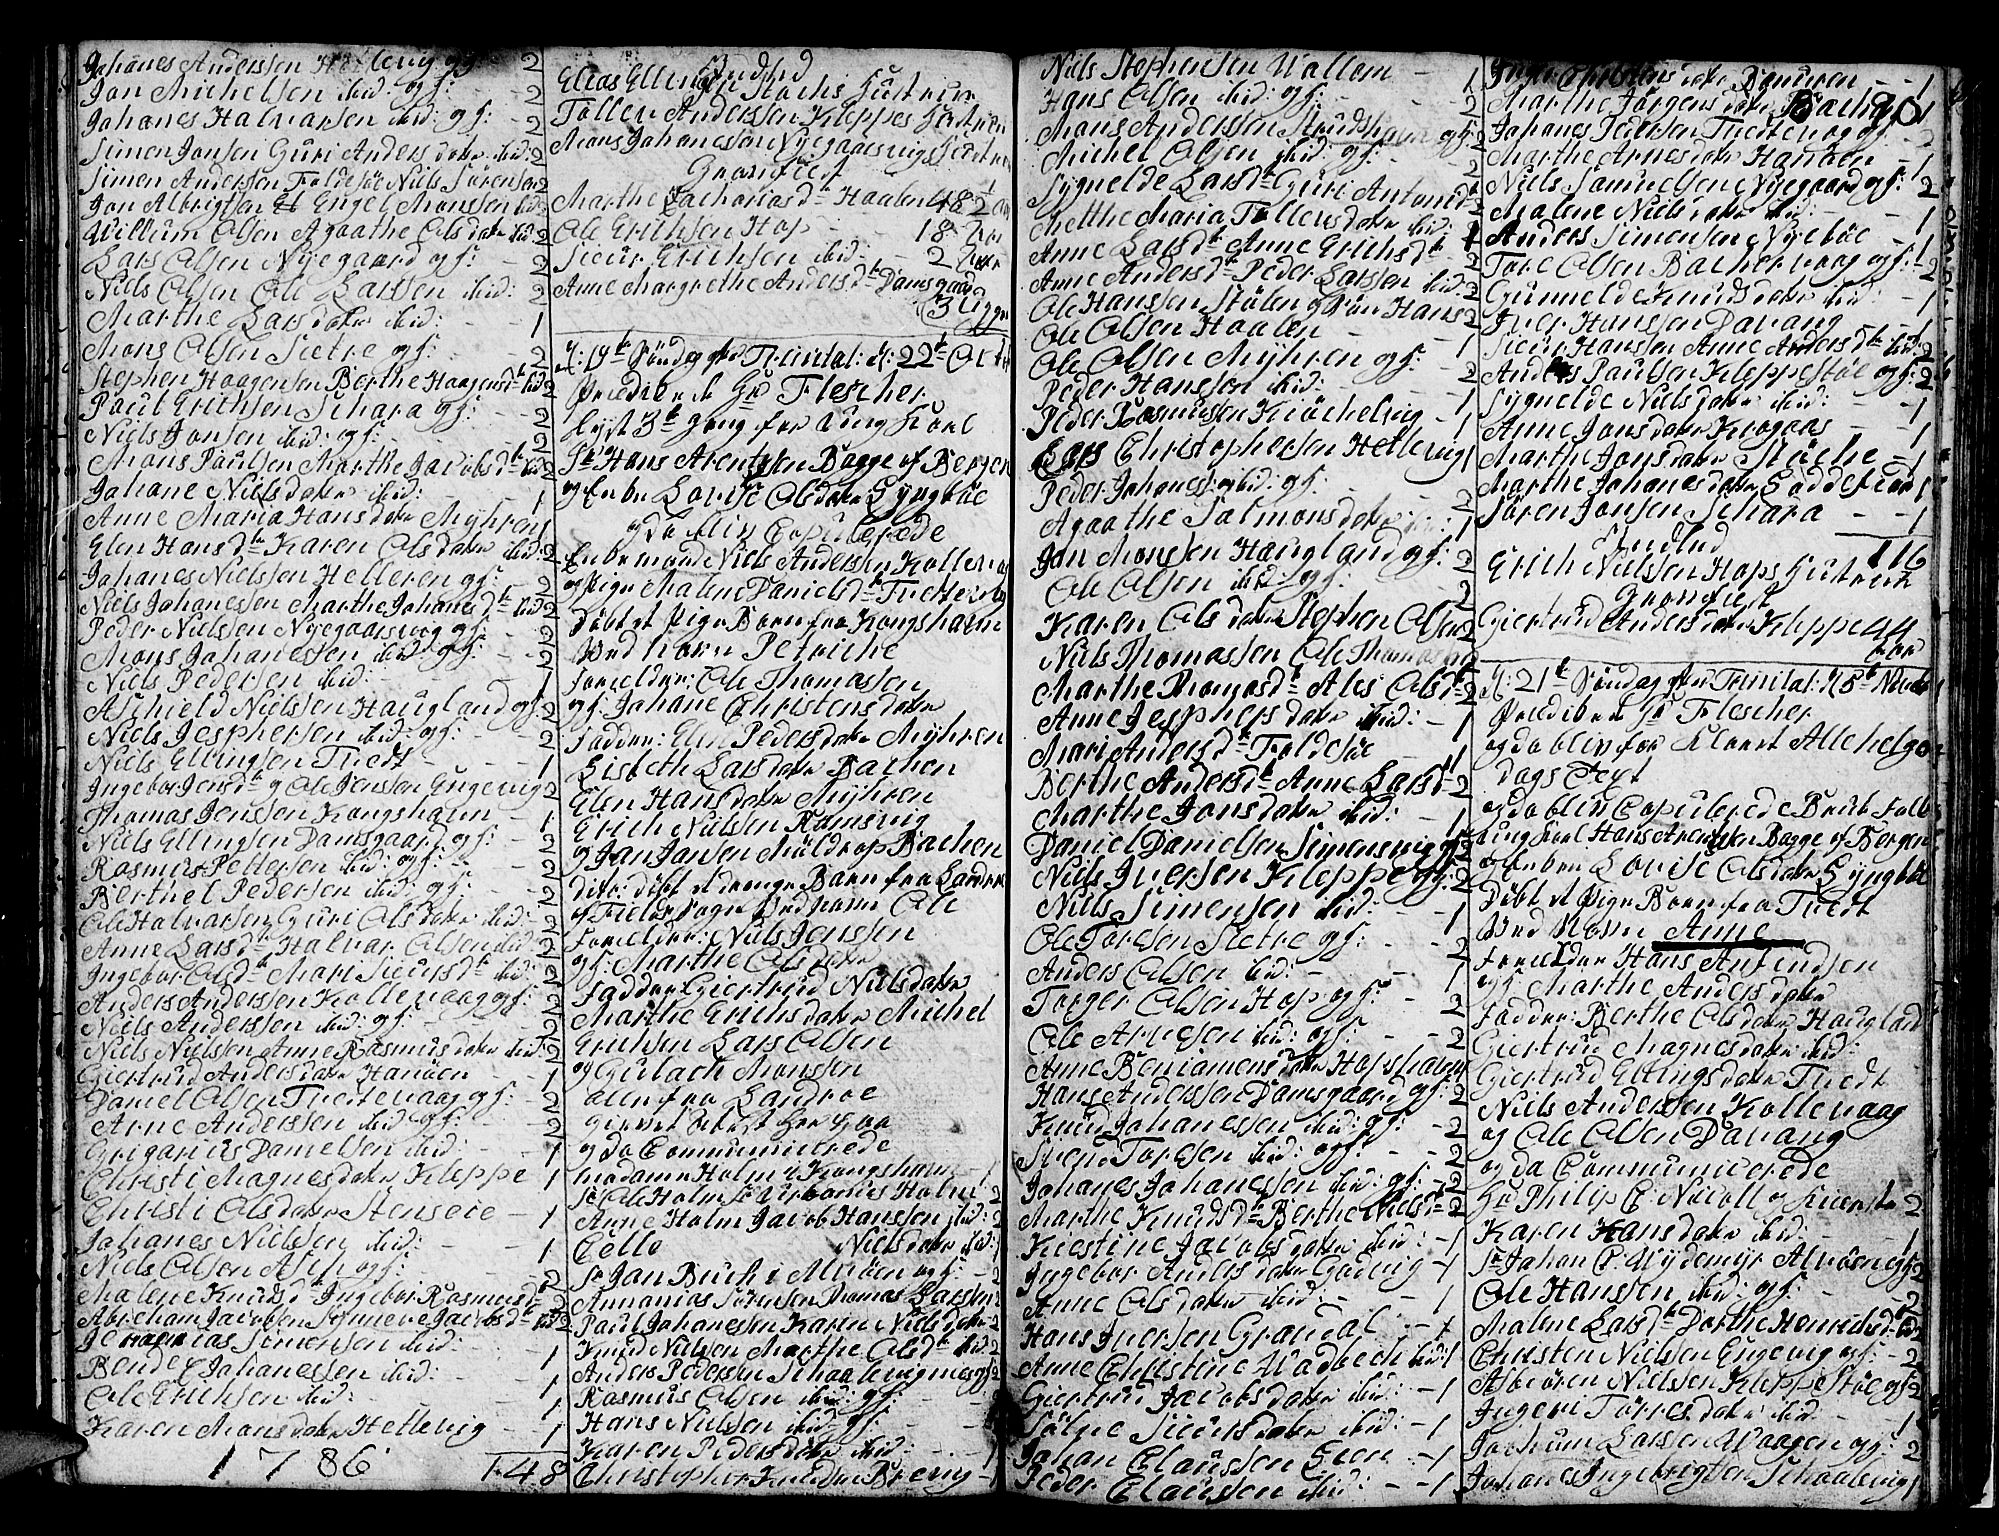 Johanes Anderssen Hellevig og f: - 2
Jon Michelsen ibid: og f: - 2
Johanes Halvarsen ibid: og f: - 2
Simen Jonsen Guri Anders dater ibid: 2
Simen Andersen Foldesöe Niels Sörensen 2
Jon Albrigtsen Engel Monssen ibid: 2
Willum Olsen Agaathe Olsdater ibid: 2
Lars Olsen Nyegaard og f: - 2
Niels Olsen Ole Larssen ibid: 2
Marthe Larsdater ibid: - - 1
Mons Olsen Sietre og f: - 2
Stephen Haagensen Berthe Haagensdr ibid: 2
Paul Erichsen Schara og f: - 2
Niels Jonsen ibid: og f: - - 2
Mons Paulsen Marthe Jacobsdr ibid: 2
Johane Nielsdater ibid: - 1
Anne Maria Hansdater Myhren 1
Elen Hansdr Karen Olsdater ibid: 2
Johanes Nielssen Helleren og f: - 2
Niels Johanessen Marthe Johanesdr ibid: 2
Peder Nielssen Nyegaarsvog og f: - 2
Mons Johanessen ibid: og f: - 2
Niels Pedersen ibid: - - 1
Aschield Nielssen Haugland og f: 2
Niels Jesphersen ibid: og f: - 2
Niels Ellingsen Tuedt - - 1
Ingebor Jensdr og Ole Jenssen Engevig 2
Thomas Jenssen Kongshavn - - 1
Niels Ellingsen Damsgaard og f: - 2
Rasmus Pettersen ibid: og f: - 2
Berthel Pedersen ibid: og f: - 2
Ole Halvarsen Guri Olsdater ibid: 2
Anne Larsdr Halvar Olsen ibid: 2
Ingebor Olsdr Mari Siursdr ibid: 2
Anders Anderssen Kollevaag og f: 2
Niels Anderssen ibid: og f: - 2
Niels Nielssen Anne Rasmusdater ibid: 2
Giertrud Andersdater Hanöen - 1
Daniel Olsen Tuetevaag og f: - 2
Arne Anderssen ibid: og f: - 2
Grigarius Danielsen ibid: - 1
Christi Magnesdater Kleppe 1
Christi Olsdater Stenseie - 1
Johanes Nielssen ibid: - - 1
Niels Olsen Ask og f: - 2
Malene Knudsdr Ingebor Rasmusdr 2
Abraham Jacobsen Synneve Jacobsdr ibid: 2
Jeremias Simensen ibid: - 1
Bendix Johanessen ibid: - 1
Ole Erichsen ibid: - - 1
Karen Monsdater Hellevig - 1
1786 148
Indlud
Elias Ellingsen Stochs Hustrue
Tollen Anderssen Kleppes Hustrue
Mons Johanessön Nyegaarsvogs Hustrue
Gravfæst
Marthe Zachariasdr Haalen 48 Aar
Ole Erichsen Hop - 18 Aar
Sieur Erichsen ibid: - 2 Aar
Anne Margrethe Andersdr Damsgaard
3 Uger
D: 19de Söndag efter Trinitat: D: 22de Octbr
Prædikede Hr Flescher
lyst 3de gang for Ung Karl
Sr Hans Arentzen Bagge af Bergen
og Enke Lovise Olsdater Lyngböe
og da blev Copulerede
Enkemand Niels Andersen Kollevaag
og Pige Malene Danielsdr Tuetevaag
Döbt et Pige Barn fra Kongshavn
Ved Navn Petriche
Forældre: Ole Thomassen
og f: Johane Christensdater
Faddere: Elen Pedersdater Myhren
Lisbeth Larsdater Bachen
Elen Hansdater Myhren
Erich Nielsen Ramsvig
og Jan Jansen Müldrop Bachen
dito: döbt et drenge Barn fra Landroe
af Field Sogn Ved Navn Ole
Forældre: Niels Jenssen
og f: Marthe Olsdater
Fadder Giertrud Nielsdater
Marthe Erichsdater Michel
Erichsen Lars Olsen
og Gulach Monssen
alle fra Landroe
og da Communicerede
Madame Holm i Kongshavn - 1
Sr Ole Holm Sr Urbanus Holm 2
Anne Holm Jacob Hanssen ibid: 2
Celle Nielsdater ibid: 1
Sr Jan Buch i Alvöen og f: - 2
Annanias Sörensen Thomas Larssen 2
Paul Johanessen Karen Nielsdater 2
Knud Nielsen Marthe Olsdr ibid: 2
Anders Pedersen Schaalevignes og f: 2
Rasmus Olsen ibid: og f: - 2
Hans Nielsen ibid: og f: - 2
Karen Pedersdater ibid: - - 1
Christopher Knudsen Brevig - 1
Niels Stephensen Vallem - - 1
Hans Olsen ibid: og f: - - 2
Mons Anderssen Strudshavn og f: 2
Michel Olsen ibid: og f: - 2
Sygnelde Larsdr Guri Antonid: 2
Mette Maria Tollevsdater ibid: 1
Anne Larsdr Anne Erichsdr 2
Anne Andersdr Peder Larssen ibid: 2
Ole Hanssen Stölen Jörn Hans 2
Ole Olsen Haalen - - 1
Ole Olsen Myhren og f: - 2
Peder Hanssen ibid: - - 1
Peder Rasmussen Kiöchelvig - 1
Lars Christophersen Hellevig 1
Peder Johanessen ibid: og f: - 2
Agaathe Salmonsdater ibid: 1
Jan Monssen Haugland og f: 2
Ole Olsen ibid: og f: 2
Karen Olsdater Stephen Olsen 2
Niels Thomassen Ole Thomassen 2
Marthe Thomasdr Ales Olsdr 2
Anne Jesphersdater ibid: - 1
Mari Andersdr Foldesöe - 1
Berthe Andersdr Anne Larsdr 2
Marthe Jonsdater ibid: - 1
Daniel Danielsen Simensvig og f: 2
Niels Iversen Kleppe og f: 2
Niels Simensen ibid: - 1
Ole Toresen Sietre og f: - 2
Anders Olsen ibid: - - 1
Torger Olsen Hop og f: - 2
Ole Arnesen ibid: og f: - 2
Anne Beniamensdater Hopshavn
Hans Anderssen Damsgaard og f: 2
Knud Johanessen ibid: og f: - 2
Svend Toresen ibid: og f: - 2
Johanes Johanessen ibid: og f: - 2
Marthe Knudsdr Berthe Nielsdr 2
Kiestine Jacobsdater ibid: - 1
Ingebor Andersdater Godvig - 1
Anne Olsdater ibid: - - 1
Hans Iversen Gravdal - 1
Anne Christine Wadbech ibid: 1
Giertrud Jacobsdater ibid: - 1
Sölne Sieursdater ibid: - 1
Johan Claussen Steen - 1
Peder Claussen ibid: - - 1
80
Inger Christensdater Bönröen - - 1
Marthe Jörgensdater Bachen 1
Johanes Pedersen Tuedtevog og f: 2
Marthe Arnesdater Hanöen - 1
Niels Samuelsen Nyegaard og f: 2
Malene Nielsdater ibid: - - 1
Anders Simensen Nyeböe - 1
Tore Olsen Bachervaag og f: 2
Gunnelde Knudsdater ibid: - 1
Iver Hanssen Davang - - 1
Sieur Hanssen Anne Andersdr ibid: 2
Anders Paulsen Kleppestöe og f: 2
Sygnelde Nielsdater ibid: - - 1
Anne Jonsdater Krogaas - - 1
Marthe Jonsdater Stöche - 1
Marthe Johanesdater Loddefiord 1
Sören Jonsen Schara - - 1
116
Indlud
Erich Nielssen Hops Hustrue
Gravfæst
Giertrud Andersdater Kleppe 44
Aar
D: 21de Söndag efter Trinitat: D: 5de November
Prædikede Hr Flescher
og da blev for Klaret Allehelgen
dags Text
og da blev Copulerede Brude Folk
Ung Karl Hans Arentzen Bagge af Bergen
og Enken Lovise Olsdater Lyngböe
Döbt et Pige Barn fra Tuedt
Ved Navn Anne
Forældre Hans Anfindsen
og f: Marthe Andersdater
Fadder: Berthe Olsdater Haugland
Giertrud Magnesdater ibid:
Giertrud Ellingsdater Tuedt
Niels Anderssen Kollevaag
og Ole Olsen Davang
og da Communicerede
Hr Philip C Nücoll og Kiereste 2
Karen Hansdater ibid: - - 1
Sr Johan C: Wydemyr Alvöen og f: 2
Ole Hanssen ibid: og f: - - 2
Malene Larsdr Dorthe Henrichsdr ibid: 2
Christen Nielssen Engevig og f: - 2
Asbiören Nielssen Kleppestöe og f: 2
Ingeri Torresdater ibid: - - 1
Jochum Larssen Waagen og f: - 2
Johanes Ingebrigtsen Schaalevig 1